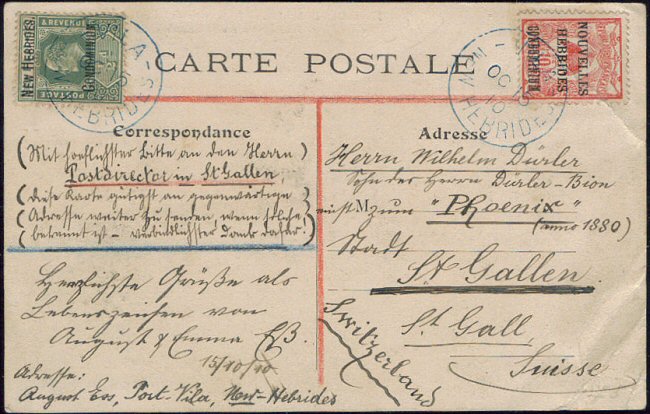 NEW HEBRIDES.
CONDOMINIUM.
& REVENUE
POSTAGE
HEBRIDES
CARTE POSTALE
NOUVELLES
HÉBRIDES
CONDOMINIUM
OC 15
10
HEBRIDES
Correspondance
(Mit hoeflichster Bitte an den Herrn)
Postdirector in St Gallen
(diese Karte gütigst an gegenwärtige)
(Adresse weiter zu senden wenn solche)
(bekannt ist – verbindlichster Dank dafür!)
Herzlichste Grüße als
Lebenszeichen von
August & Emma
15/10/10
Adresse:
August Eos, Port-Vila, New-Hebrides
Adresse
Herrn Wilhelm Dürler
Sohn des Herrn Dürler-Bion
einst M zum "Phoenix"
(anno 1880)
Stadt
St Gallen
St Gall
Suisse
Switzerland